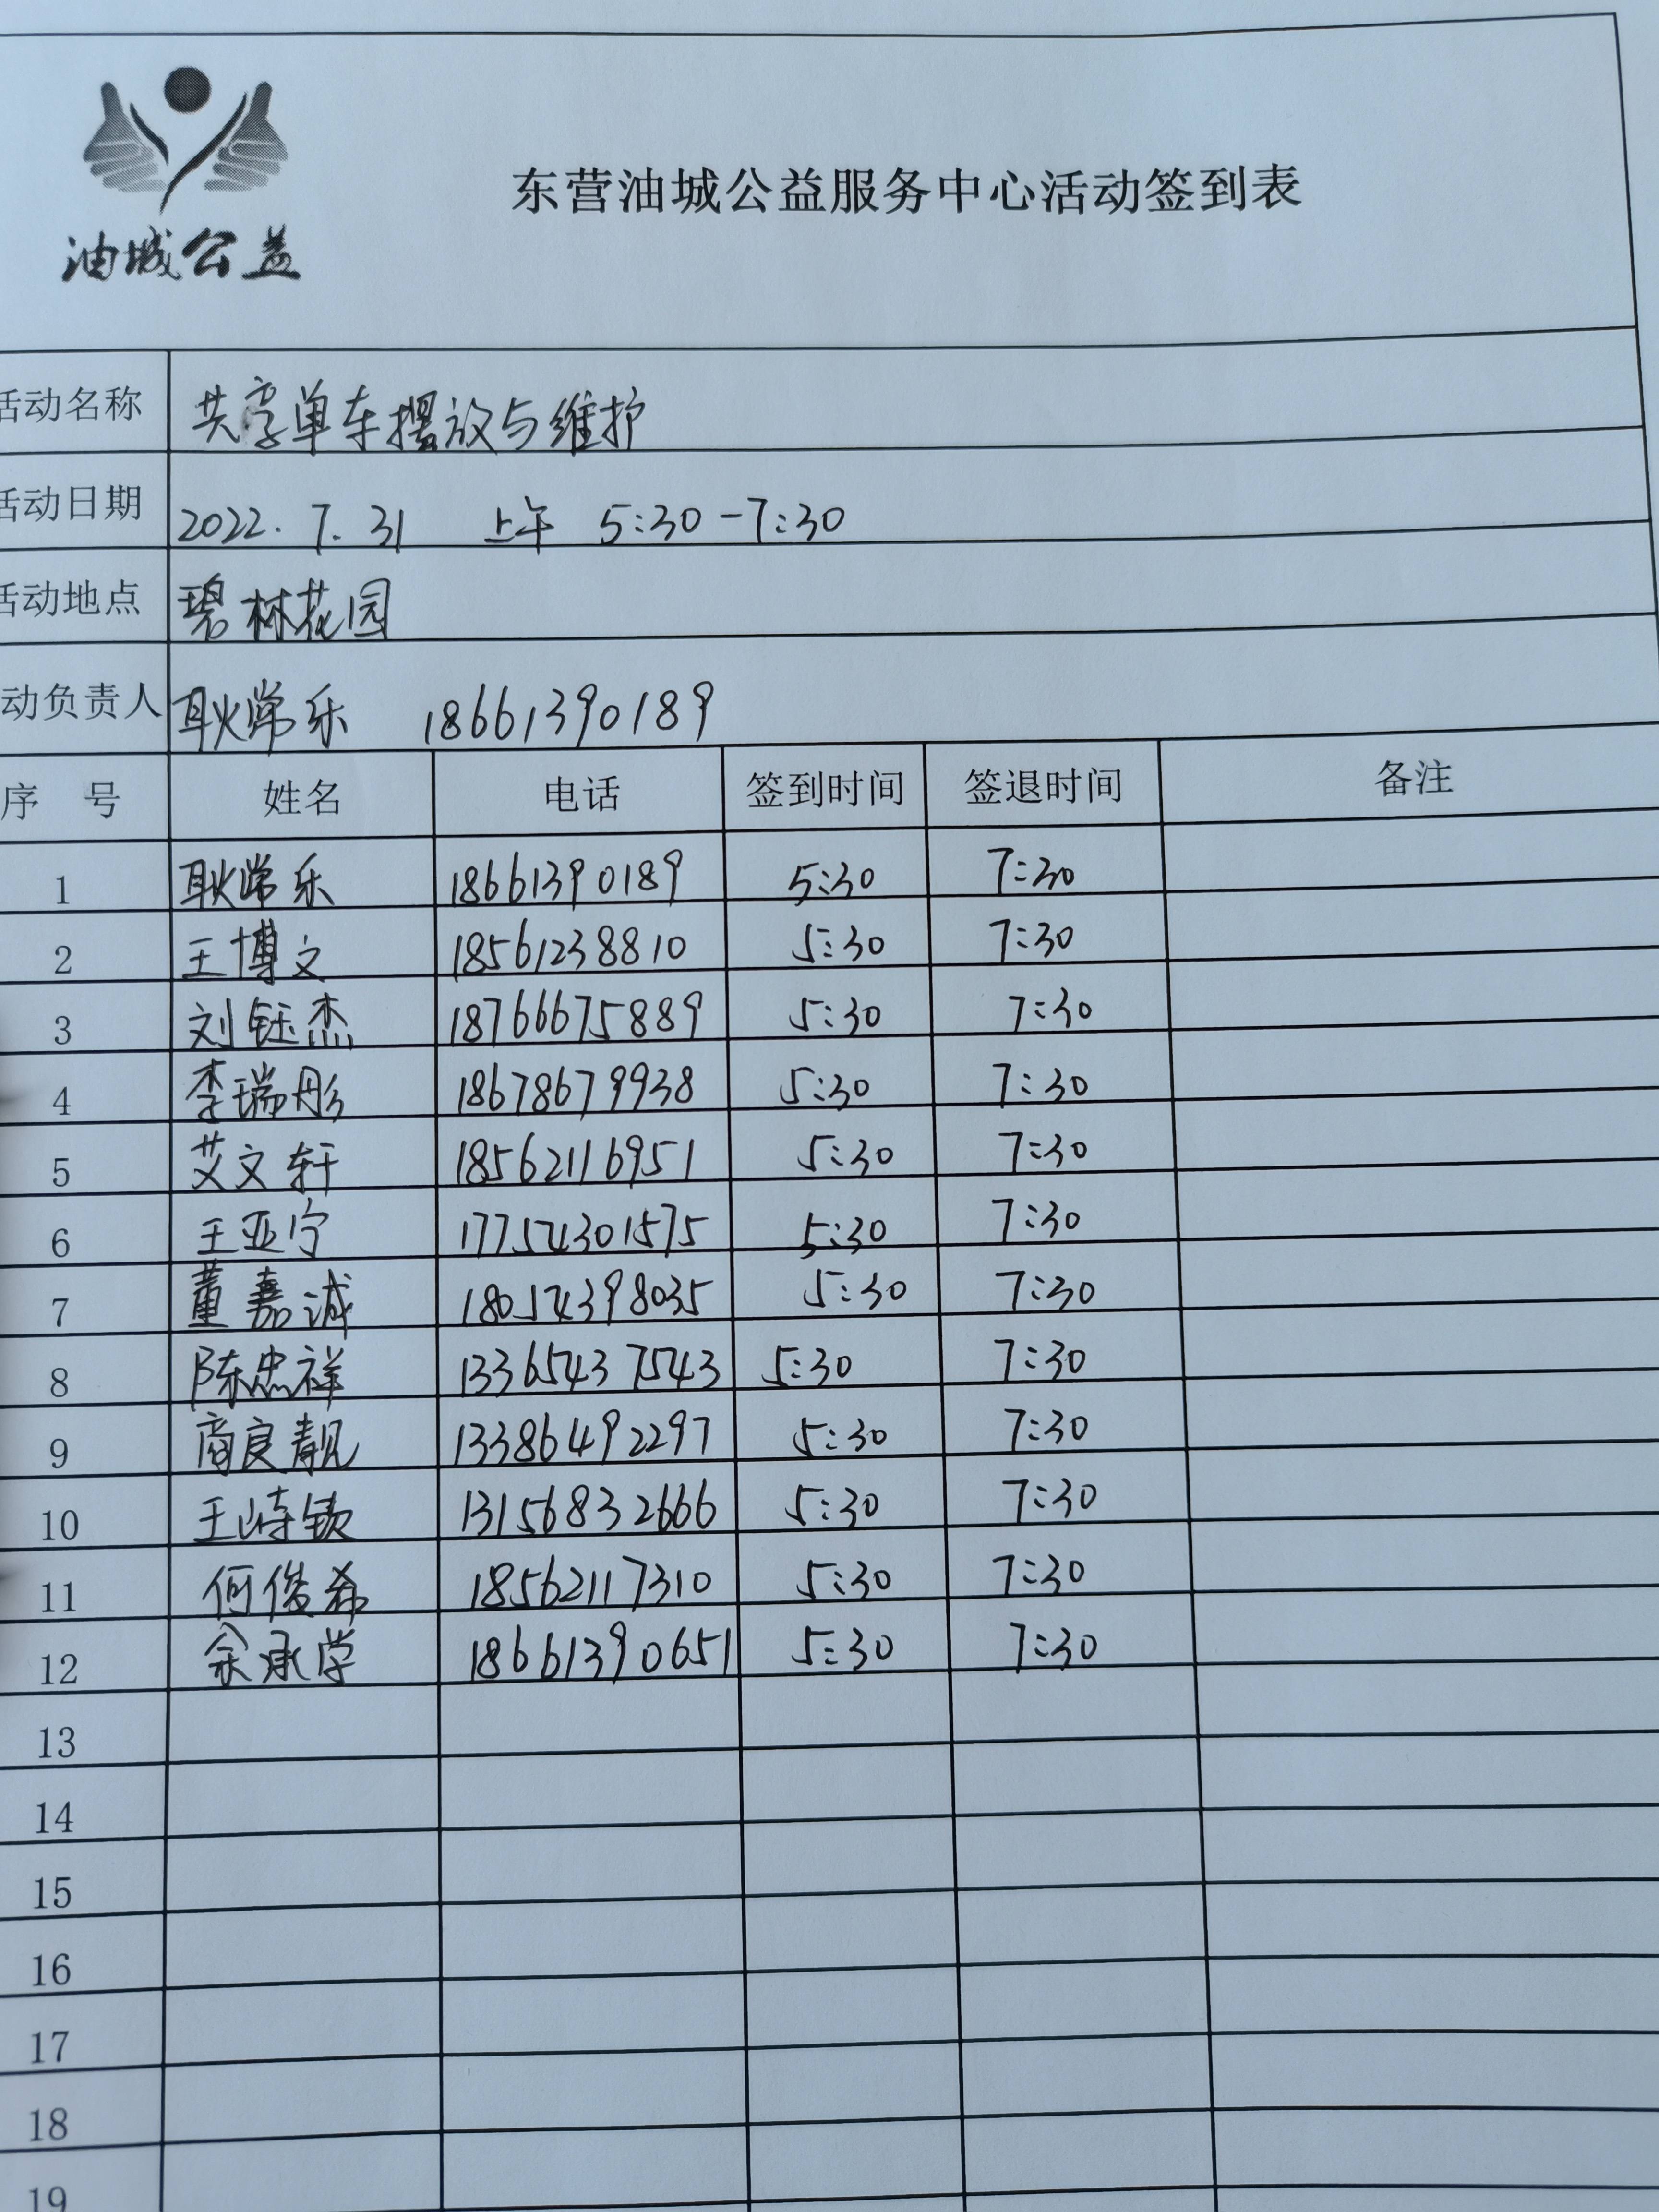 油城公益
东营油城公益服务中心活动签到表
活动名称 共享单车摆放与维护
活动日期 2022.7.31 上午 5:30-7:30
活动地点 碧林花园
动负责人 耿常乐 18661390189
序 号 姓名 电话 签到时间 签退时间 备注
1 耿常乐 18661390189 5:30 7:30
2 王博文 18561238810 5:30 7:30
3 刘钰杰 18766675889 5:30 7:30
4 李瑞彤 18678679938 5:30 7:30
5 艾文轩 18562116951 5:30 7:30
6 王亚宁 17754301575 5:30 7:30
7 董嘉诚 18054398035 5:30 7:30
8 陈忠祥 13365437543 5:30 7:30
9 商良靓 13386492297 5:30 7:30
10 王崎钦 13156832666 5:30 7:30
11 何俊希 18562117310 5:30 7:30
12 余承学 18661390651 5:30 7:30
13
14
15
16
17
18
19